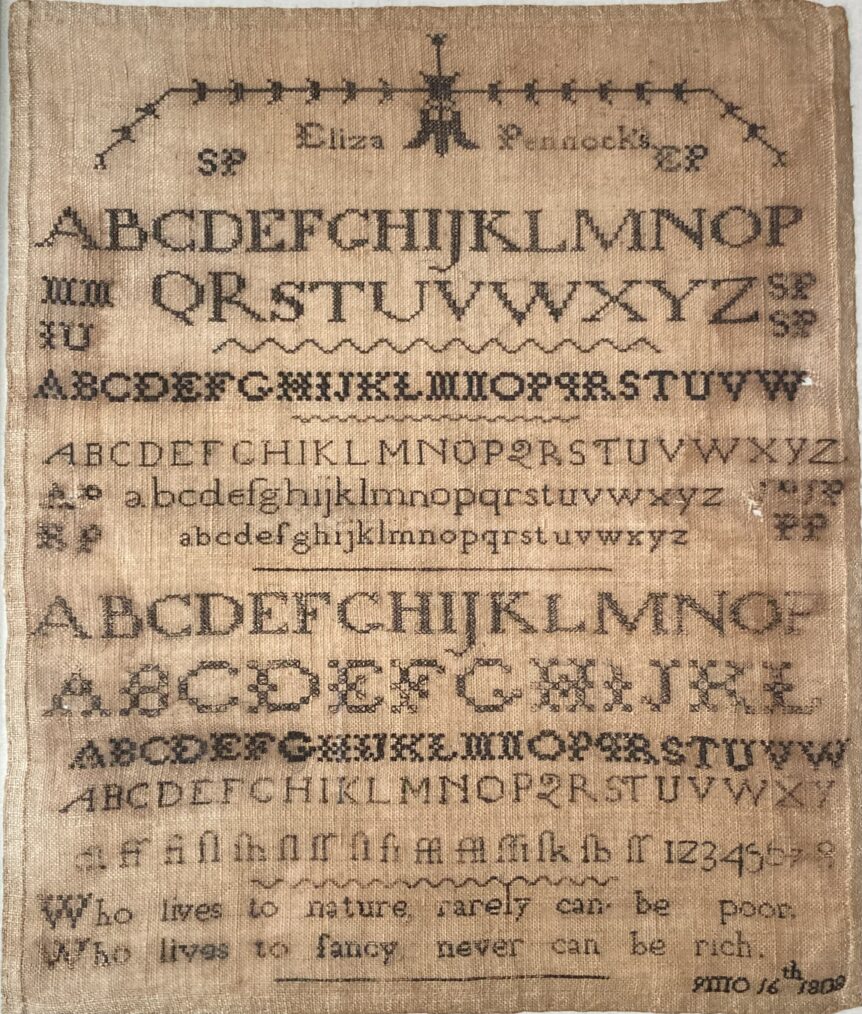 Eliza Pennock's
SP EP
ABCDEFGHIJKLMNOP
QRSTUVWXYZ SP
IU SP
ABCDEFGHIJKLMNOPQRSTUVW
ABCDEFGHIKLMNOPQRSTUVWXYZ
abcdefghijklmnopqrstuvwxyz
R P abcdefghijklmnopqrstuvwxyz PP
ABCDEFGHIJKLMNOP
ABCDEFGHIJKL
ABCDEFGHIJKLMNOPQRSTUVW
ABCDEFGHIKLMNOPQRSTUVWXY
ct ff fi fl ſh ſl ſſ ſt ſi ffi ffl ſſi ſk ſb ſſ 12345678
Who lives to nature, rarely can be poor,
Who lives to fancy, never can be rich.
16th 1808